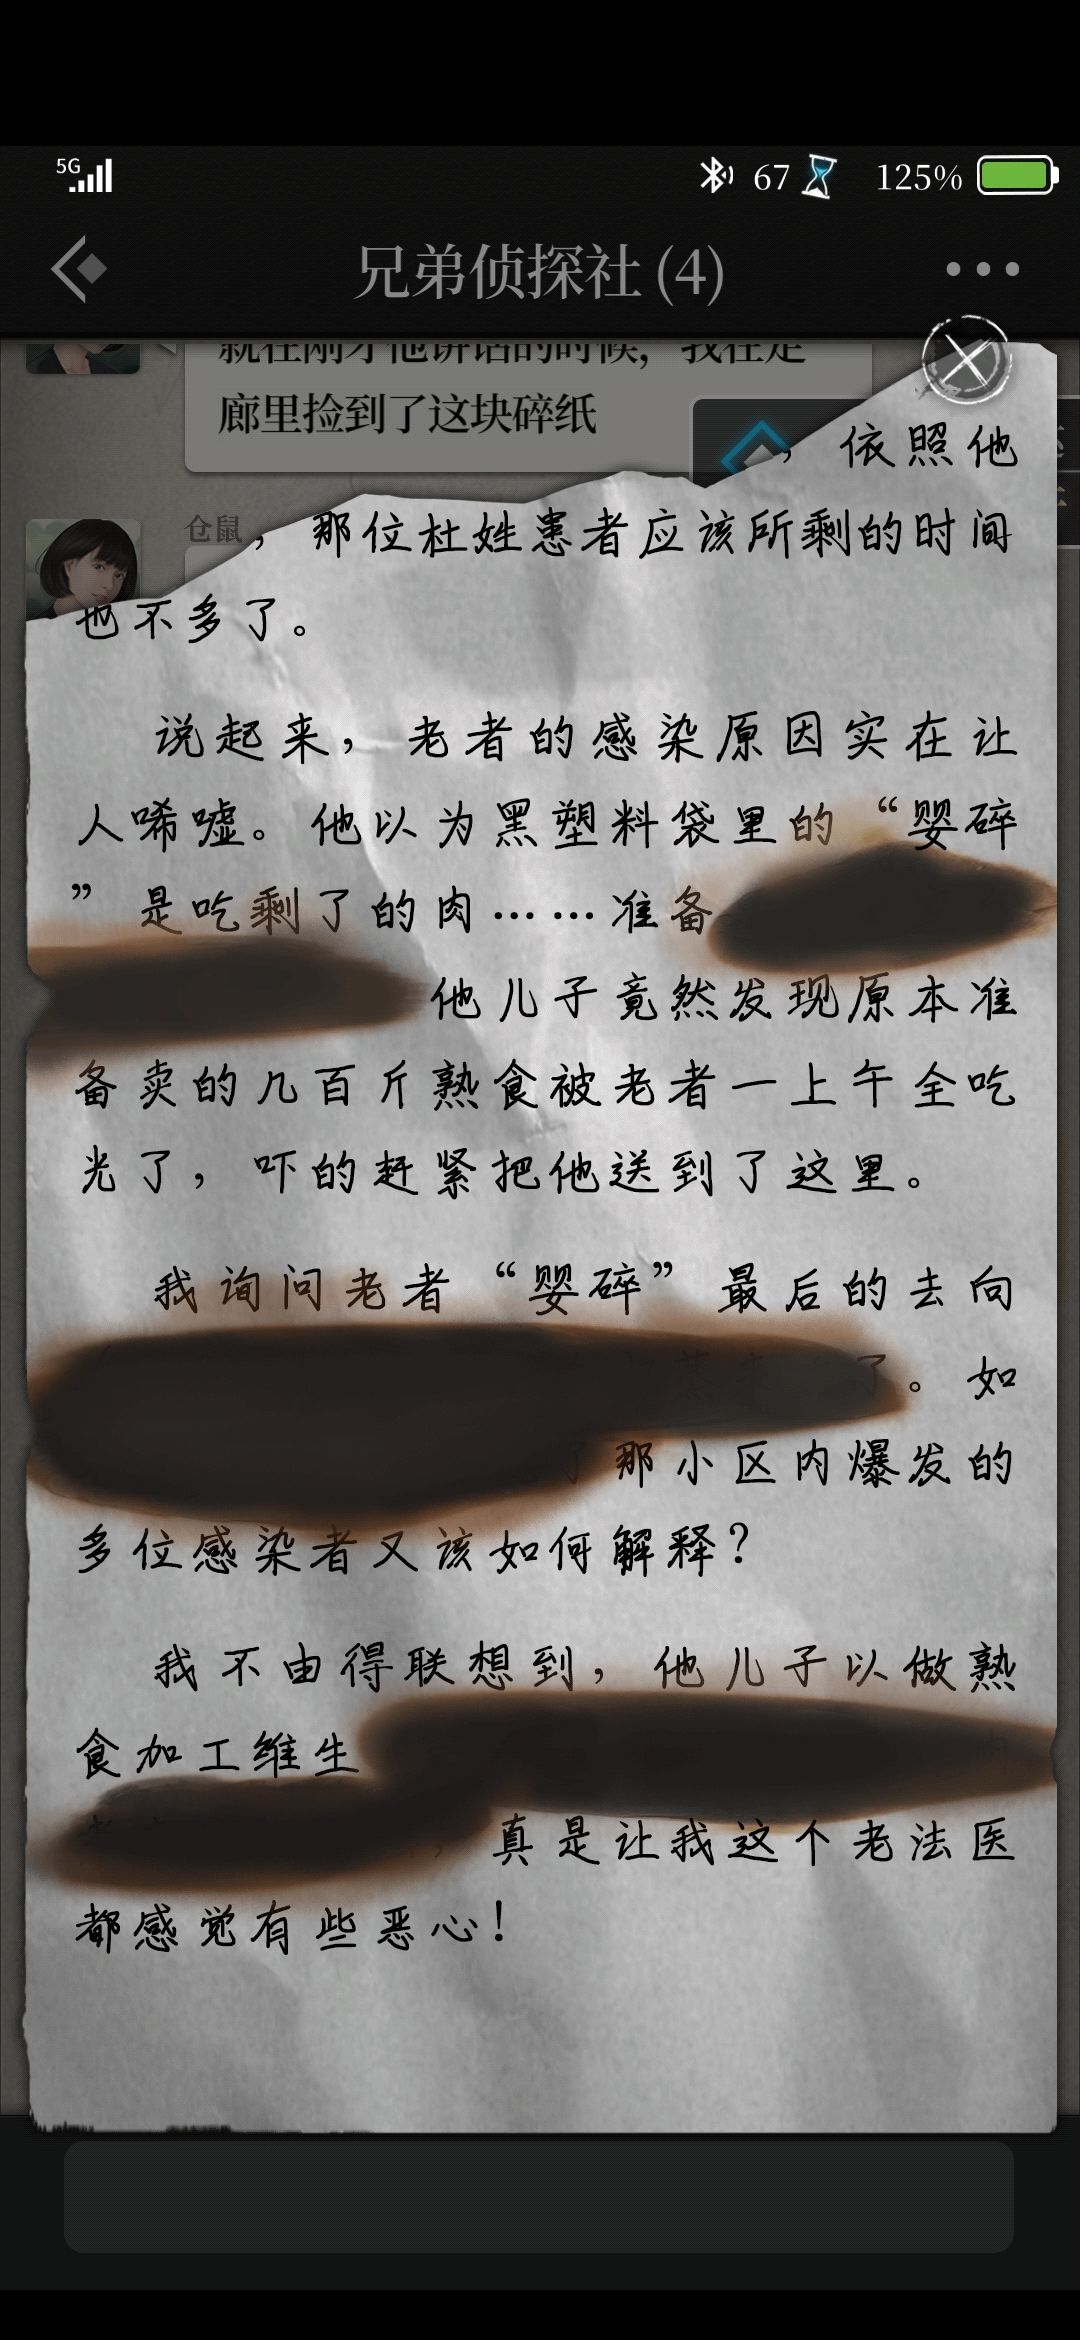 5G
67
125%
兄弟侦探社 (4)
就在刚才他讲话的时候，我在走
廊里捡到了这块碎纸
仓鼠
，依照他
，那位杜姓患者应该所剩的时间
也不多了。
说起来，老者的感染原因实在让
人唏嘘。他以为黑塑料袋里的“婴碎
”是吃剩了的肉……准备
他儿子竟然发现原本准
备卖的几百斤熟食被老者一上午全吃
光了，吓的赶紧把他送到了这里。
我询问老者“婴碎”最后的去向
了。如
了那小区内爆发的
多位感染者又该如何解释？
我不由得联想到，他儿子以做熟
食加工维生
，真是让我这个老法医
都感觉有些恶心！